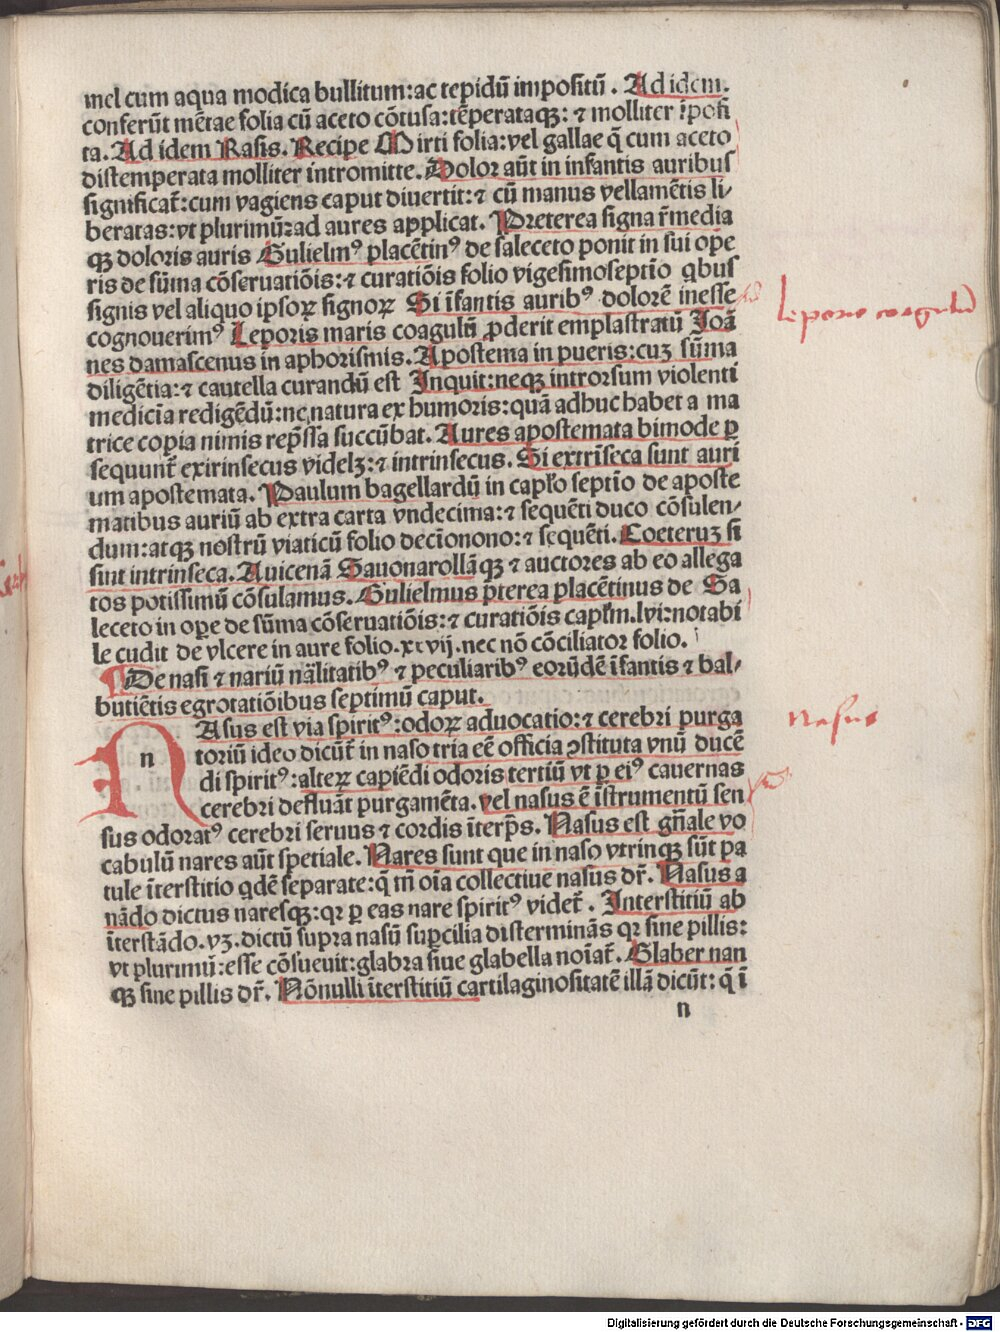 mel cum aqua modica bullitum:ac tepidū impositū . Ad idem.
conferūt mētae folia cū aceto cōtusa:tēperataqꝫ: ⁊ molliter īposi
ta. Ad idem Rasis. Recipe Mirti folia:vel gallae q̄ cum aceto
distemperata molliter intromitte. Dolor aūt in infantis auribus
significat̄:cum vagiens caput diuertit:⁊ cū manus vellamētis li⸗
beratas:vt plurimū:ad aures applicat. Preterea signa r̄media
qꝫ doloris auris Gulielmꝰ placētinꝰ de saleceto ponit in sui ope
ris de sūma cōseruatiōis:⁊ curatiōis folio vigesimoseptīo qbus
signis vel aliquo ipsoꝝ signoꝝ Si īfantis auribꝰ dolorē inesse
cognouerimꝰ Leporis maris coagulū ꝓderit emplastratū Ioā
nes damascenus in aphorismis. Apostema in pueris:cuꝫ sūma
diligētia:⁊ cautella curandū est Inquit:neqꝫ introrsum violenti
medicīa redigēdū:ne natura ex humoris:quā adhuc habet a ma
trice copia nimis rep̄ssa succūbat. Aures apostemata bimode ꝑ
sequunt̄ exirinsecus videlꝫ:⁊ intrinsecus. Si extrīseca sunt auri
um apostemata. Paulum bagellardū in capl'o septīo de aposte
matibus auriū ab extra carta vndecima:⁊ sequēti duco cōsulen⸗
dum:atqꝫ nostrū viaticū folio decīonono:⁊ sequēti. Coeteruꝫ si
sint intrinseca. Auicenā Sauonarollāqꝫ ⁊ auctores ab eo allega
tos potissimū cōsulamus. Gulielmus p̄terea placētinus de Sa
leceto in oꝑe de sūma cōseruatiōis:⁊ curatiōis capl'm.lvi:notabi
le cudit de vlcere in aure folio.xcvij.nec nō cōciliator folio.
De nasi ⁊ nariū nālitatibꝰ ⁊ peculiaribꝰ eorūdē īfantis ⁊ bal⸗
butiētis egrotatiōibus septimū caput.
n
NAsus est via spiritꝰ:odoꝝ aduocatio:⁊ cerebri purga
toriū ideo dicūt̄ in naso tria eē officia ɔstituta vnū ducē
di spiritꝰ:alteꝝ capiēdi odoris tertiū vt ꝑ eiꝰ cauernas
cerebri defluāt purgamēta. vel nasus ē īstrumentū sen
sus odoratꝰ cerebri seruus ⁊ cordis īterp̄s. Nasus est gn̄ale vo
cabulū nares aūt spetiale. Nares sunt que in naso vtrinqꝫ sūt pa
tule īterstitio qdē separate:q̄ tn̄ oīa collectiue nasus dr̄. Nasus a
nādo dictus naresqꝫ:qꝛ ꝑ eas nare spiritꝰ videt̄ . Interstitiū ab
īterstādo.vꝫ.dictū supra nasū suꝑcilia disterminās qꝛ sine pillis:
vt plurimū:esse cōsueuit:glabra siue glabella noīat̄. Glaber nan
qꝫ sine pillis dr̄. Nōnulli īterstitiū cartilaginositatē illā dicūt: q̄ ī
n
Nasus
Digitalisierung gefördert durch die Deutsche Forschungsgemeinschaft - DFG